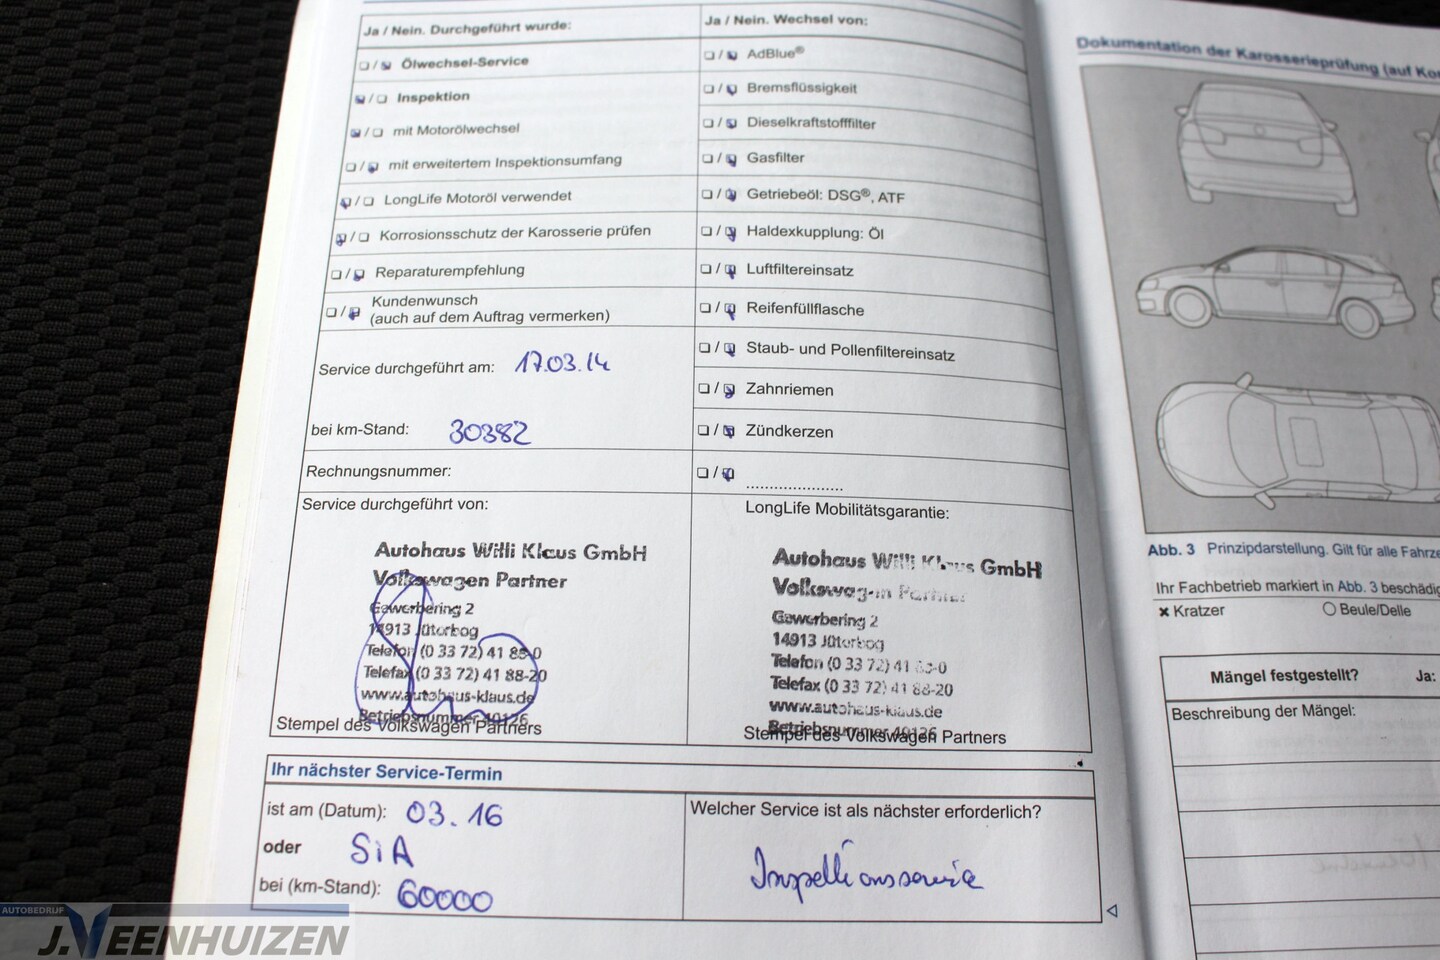 Ja / Nein. Durchgeführt wurde:
Ölwechsel-Service
Inspektion
mit Motorölwechsel
mit erweitertem Inspektionsumfang
LongLife Motoröl verwendet
Korrosionsschutz der Karosserie prüfen
Reparaturempfehlung
Kundenwunsch
(auch auf dem Auftrag vermerken)
Service durchgeführt am: 17.03.14
bei km-Stand: 30382
Rechnungsnummer:
Service durchgeführt von:
Autohaus Willi Klaus GmbH
Volkswagen Partner
Gewerbering 2
14913 Jüterbog
Telefon (0 33 72) 41 88-0
Telefax (0 33 72) 41 88-20
www.autohaus-klaus.de
Betriebsnummer 40126
Stempel des Volkswagen Partners
Ja / Nein. Wechsel von:
AdBlue®
Bremsflüssigkeit
Dieselkraftstofffilter
Gasfilter
Getriebeöl: DSG®, ATF
Haldexkupplung: Öl
Luftfiltereinsatz
Reifenfüllflasche
Staub- und Pollenfiltereinsatz
Zahnriemen
Zündkerzen
....................
LongLife Mobilitätsgarantie:
Autohaus Willi Klaus GmbH
Volkswagen Partner
Gewerbering 2
14913 Jüterbog
Telefon (0 33 72) 41 88-0
Telefax (0 33 72) 41 88-20
www.autohaus-klaus.de
Betriebsnummer 40126
Stempel des Volkswagen Partners
Ihr nächster Service-Termin
ist am (Datum): 03.16
oder SiA
bei (km-Stand): 60000
Welcher Service ist als nächster erforderlich?
Inspektionsservice
Dokumentation der Karosserieprüfung (auf
Abb. 3 Prinzipdarstellung. Gilt für alle
Ihr Fachbetrieb markiert in Abb. 3
Kratzer Beule/Delle
Mängel festgestellt? Ja:
Beschreibung der Mängel:
AUTOBEDRIJF
J. VEENHUIZEN